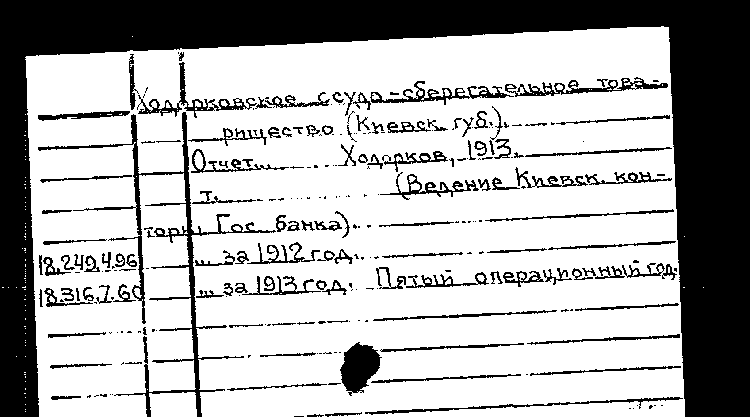 Ходорковское ссудо-сберегательное това-
рищество (Киевск. губ.).
Отчет... Ходорков, 1913.
т. (Ведение Киевск. кон-
торы Гос. банка).
18.249.4.96 ... за 1912 год.
18.316.7.60 ... за 1913 год. Пятый операционный год.